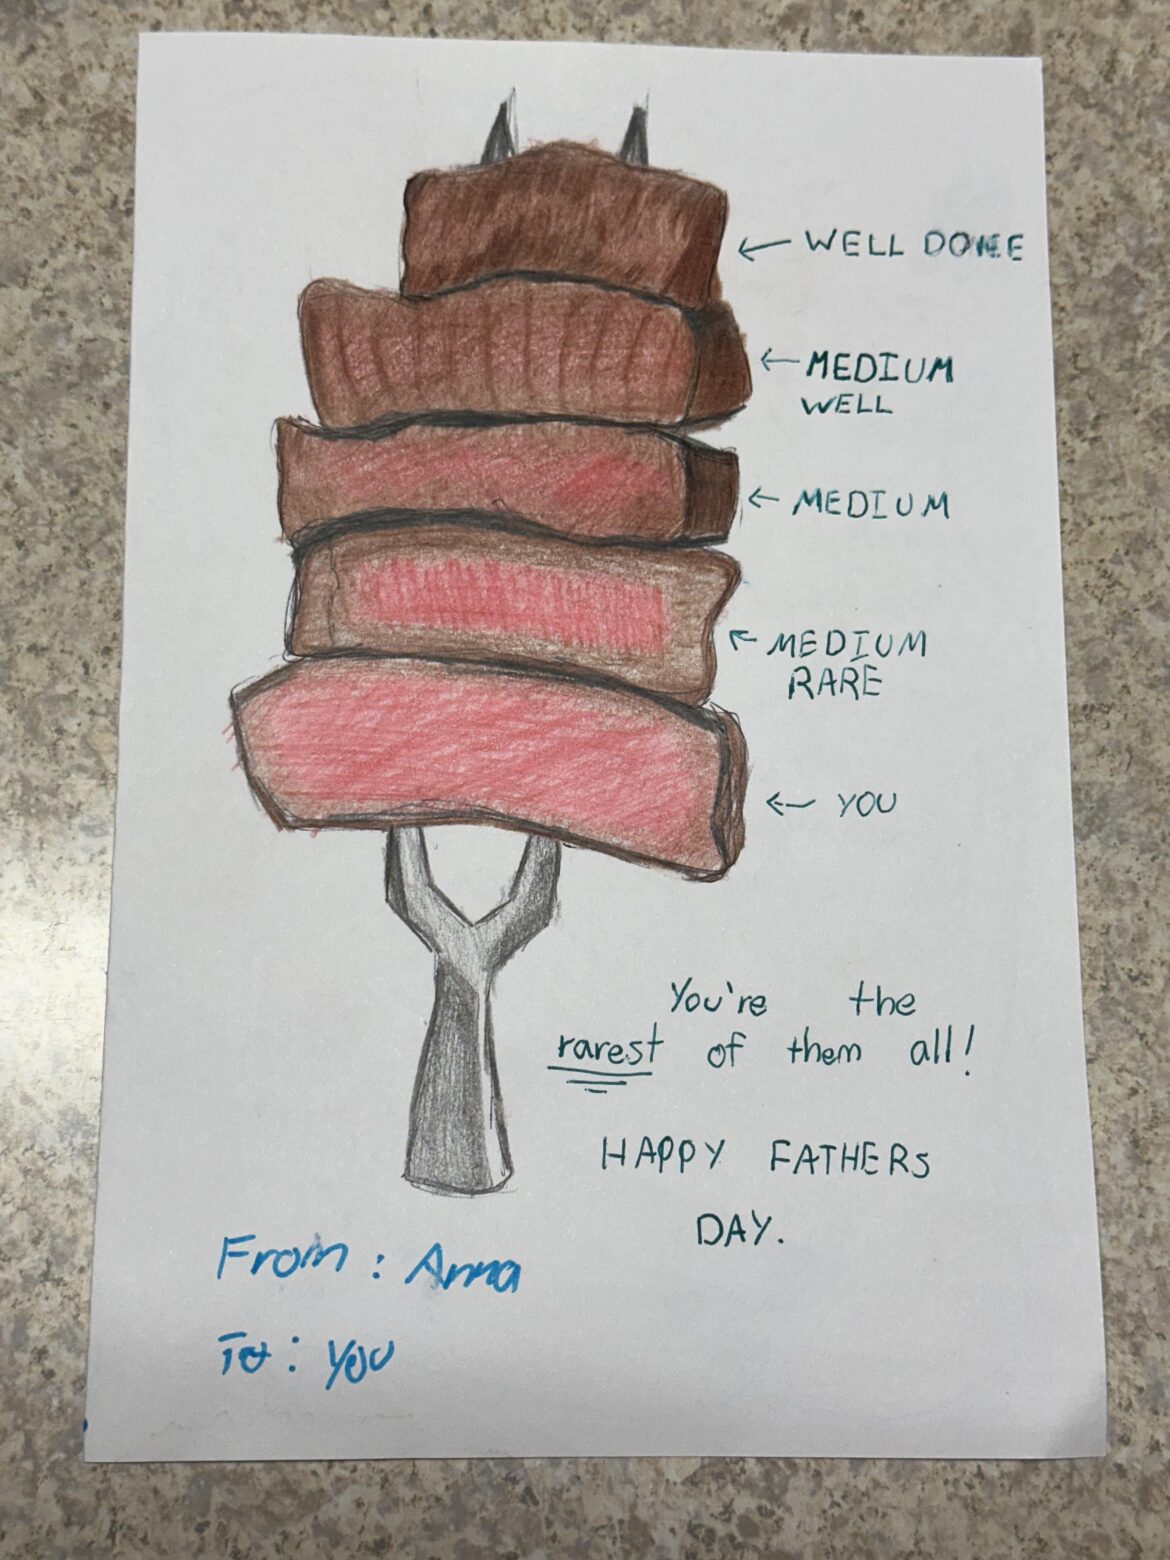 WELL DONE
MEDIUM
WELL
MEDIUM
MEDIUM
RARE
YOU
You're the
rarest of them all!
HAPPY FATHERS
DAY.
From: Anna
To: YOU